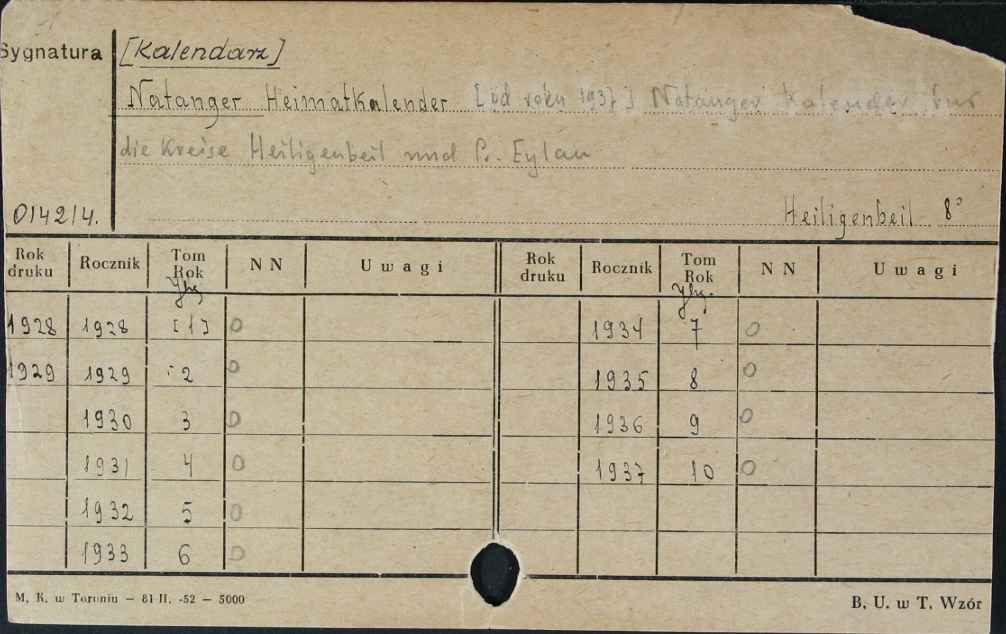 Sygnatura [Kalendarz]
Natanger Heimatkalender [od roku 1937] Natanger Kalender für
die Kreise Heiligenbeil und Pr. Eylau
014214. Heiligenbeil 8°
Rok druku Rocznik Tom Rok Jhg NN Uwagi Rok druku Rocznik Tom Rok Jhg. NN Uwagi
1928 1928 [1] 0 1934 7 0
1929 1929 2 0 1935 8 0
1930 3 0 1936 9 0
1931 4 0 1937 10 0
1932 5 0
1933 6 0
M. K. w Toruniu — 81 II. -52 — 5000 B. U. w T. Wzór